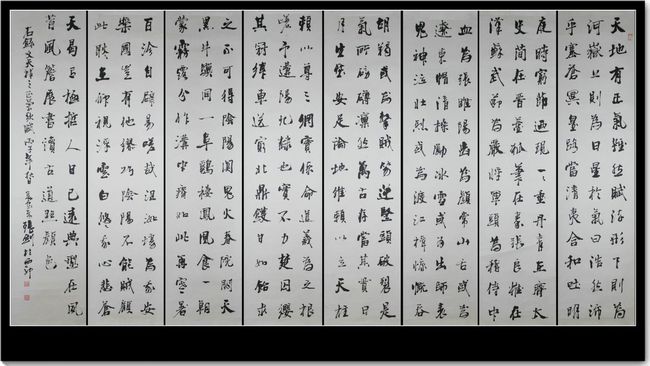 天地有正氣雜然賦流形下則為
河嶽上則為日星於人曰浩然沛
乎塞蒼冥皇路當清夷含和吐明
庭時窮節迺現一一垂丹青在齊太
史簡在晉董狐筆在秦張良椎在
漢蘇武節為嚴將軍頭為嵇侍中
血為張睢陽齒為顏常山舌或為
遼東帽清操勵冰雪或為出師表
鬼神泣壯烈或為渡江楫慷慨吞
胡羯或為擊賊笏逆豎頭破裂是
氣所磅礴凜然萬古存當其貫日
月生死安足論地維賴以立天柱
賴以尊三綱實係命道義為之根
嗟予遘陽九隸也實不力楚囚纓
其冠傳車送窮北鼎鑊甘如飴求
之不可得陰房闃鬼火春院閟天
黑牛驥同一皁鷄棲鳳凰食一朝
蒙霧露分作溝中瘠如此再寒暑
百沴自辟易嗟哉沮洳場為我安
樂國豈有他繆巧陰陽不能賊顧
此耿耿在仰視浮雲白悠悠我心悲蒼
天曷有極哲人日已遠典型在夙
昔風簷展書讀古道照顏色
右錄文天祥之正氣歌